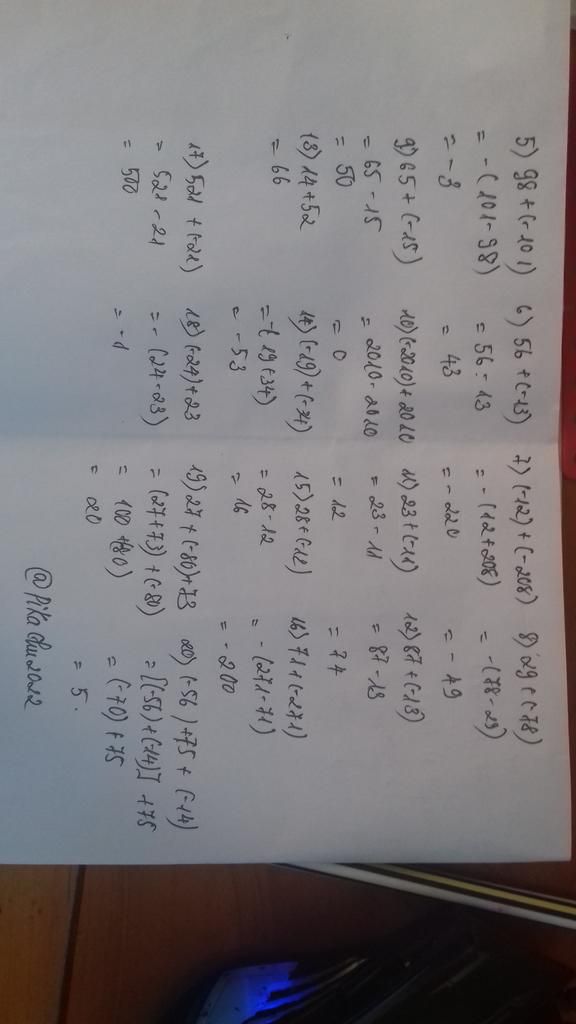 5) 98 + (-101)
= - (101 - 98)
= - 3
6) 56 + (-13)
= 56 - 13
= 43
7) (-12) + (-208)
= - (12 + 208)
= - 220
8) 29 + (-78)
= - (78 - 29)
= - 49
9) 65 + (-15)
= 65 - 15
= 50
10) (-2010) + 2010
= 2010 - 2010
= 0
11) 23 + (-11)
= 23 - 11
= 12
12) 87 + (-13)
= 87 - 13
= 74
13) 14 + 52
= 66
14) (-19) + (-34)
= - (19 + 34)
= - 53
15) 28 + (-12)
= 28 - 12
= 16
16) 71 + (-271)
= - (271 - 71)
= - 200
17) 521 + (-21)
= 521 - 21
= 500
18) (-24) + 23
= - (24 - 23)
= - 1
19) 27 + (-80) + 73
= (27 + 73) + (-80)
= 100 + (-80)
= 20
20) (-56) + 75 + (-14)
= [(-56) + (-14)] + 75
= (-70) + 75
= 5.
@PikaChu2022